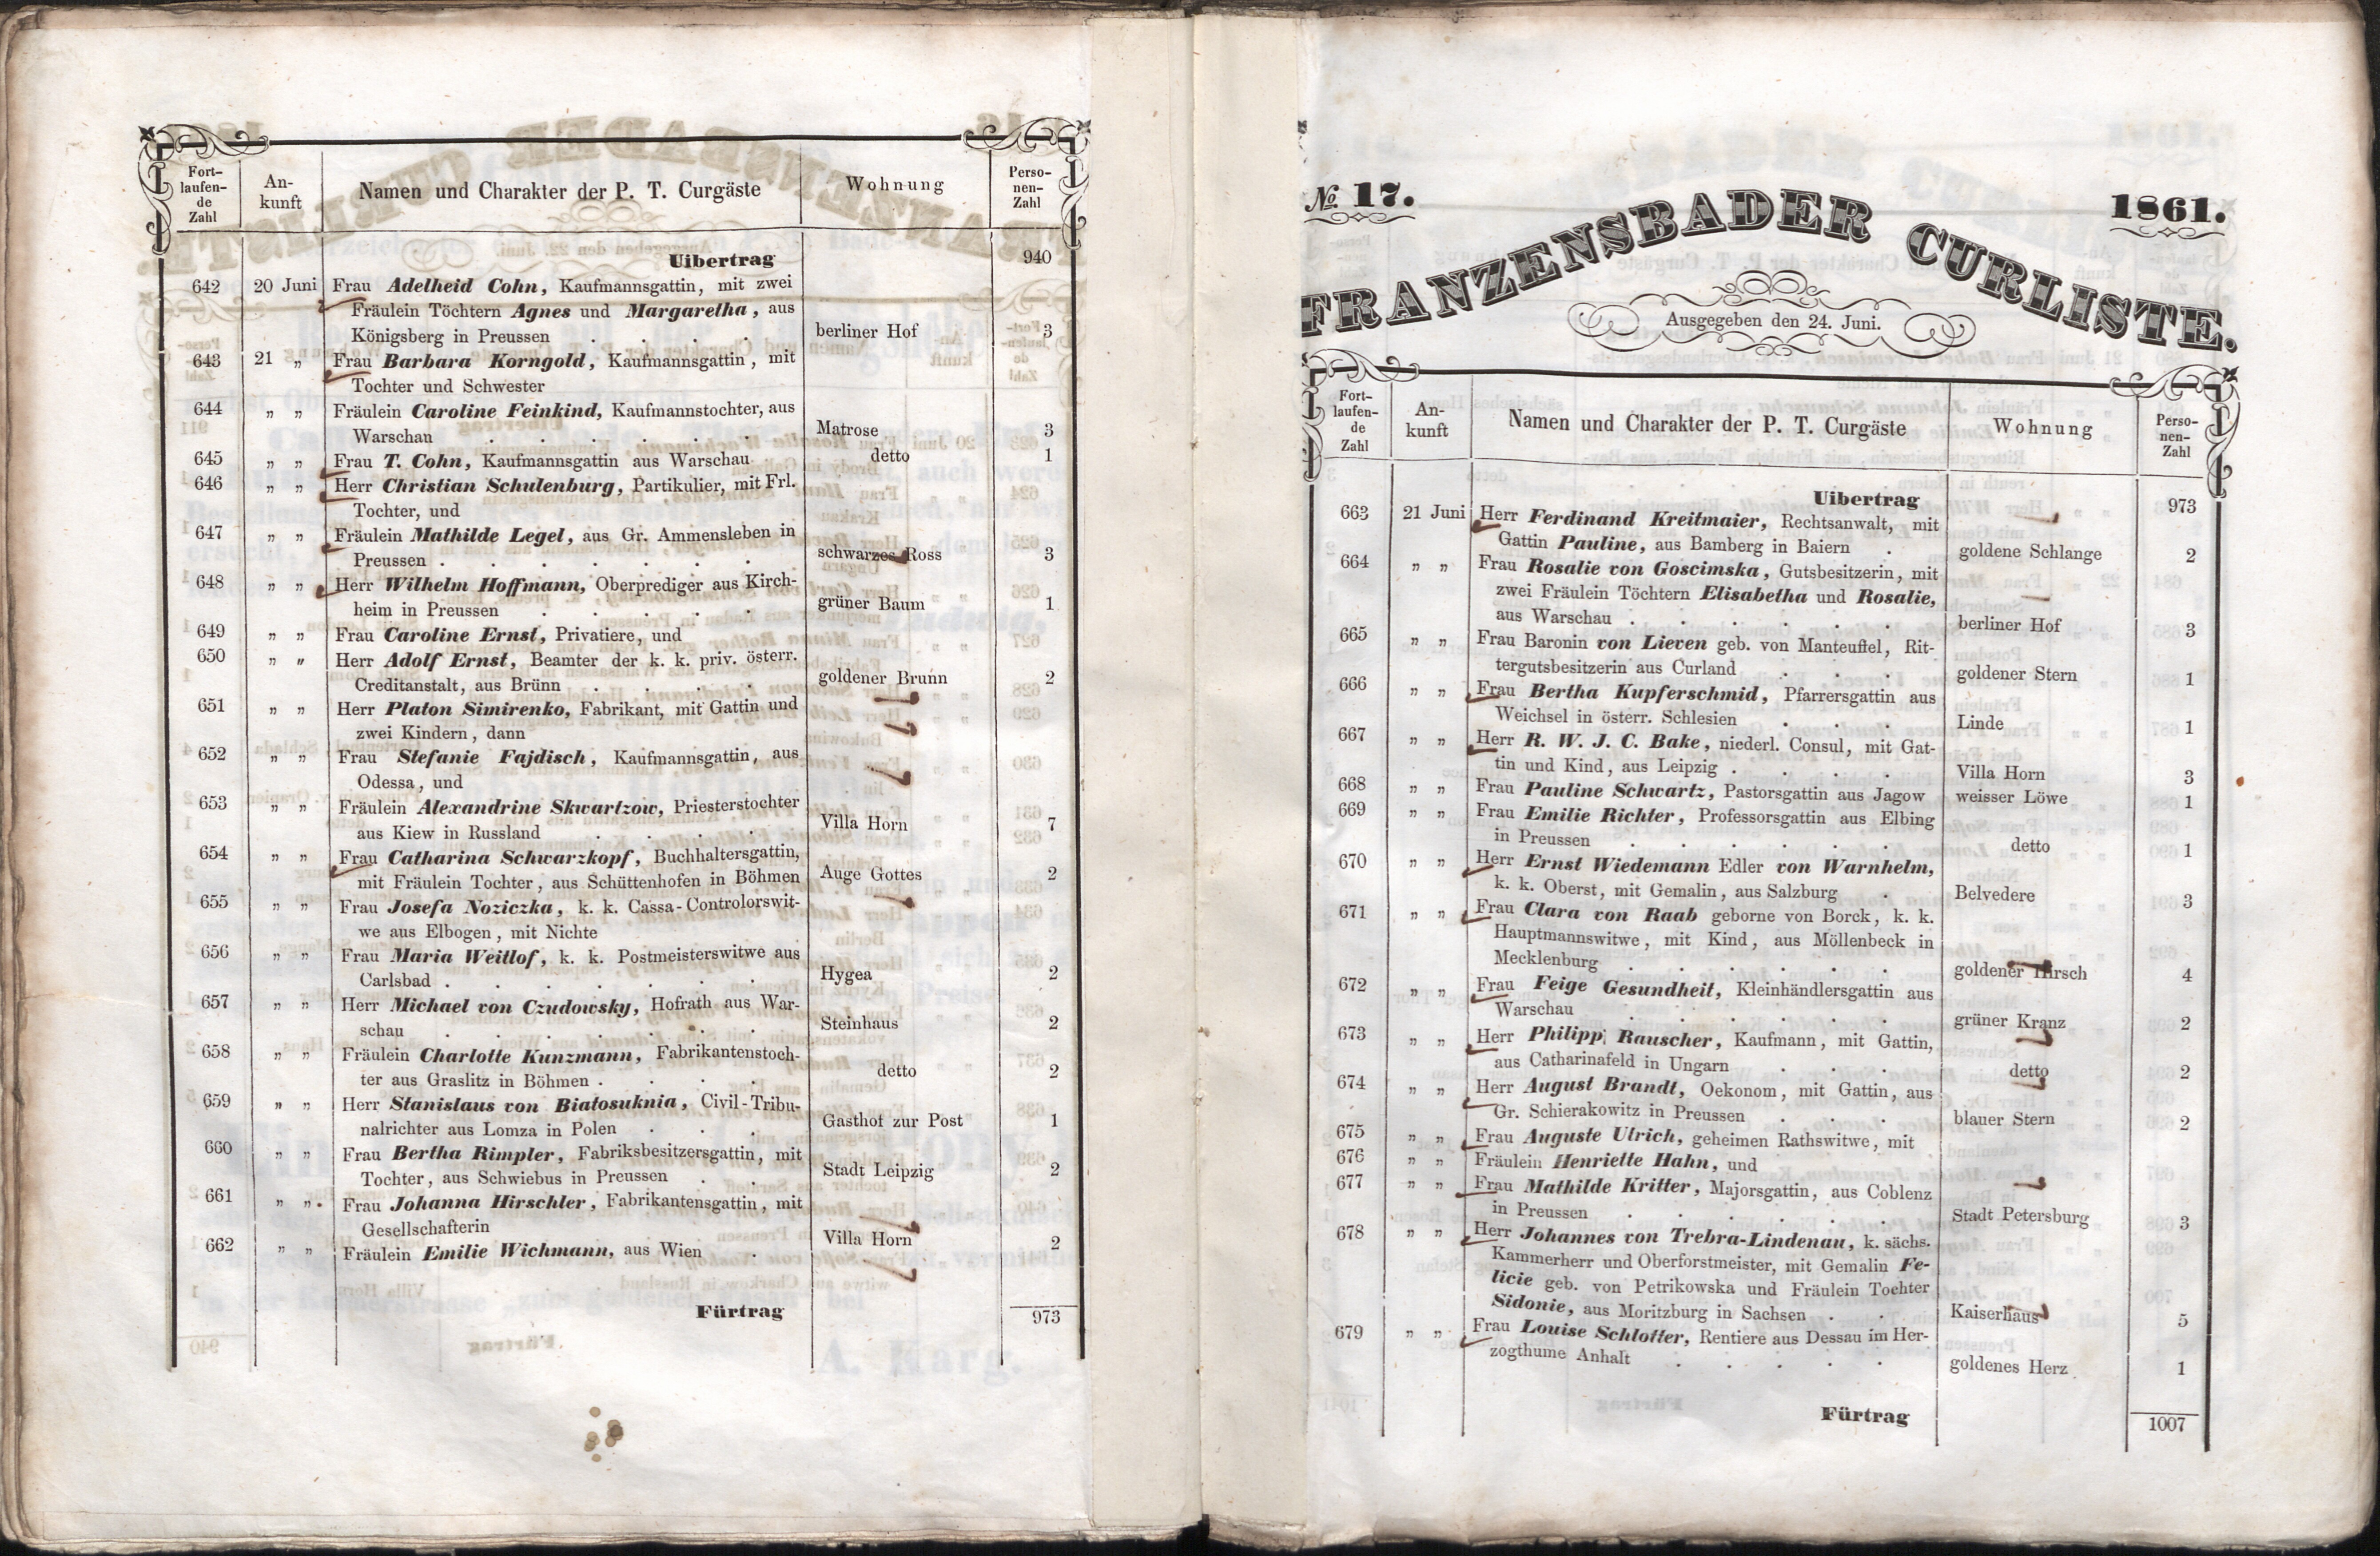 Fort-
laufen-
de
Zahl
An-
kunft
Namen und Charakter der P. T. Curgäste
Wohnung
Perso-
nen-
Zahl
Uibertrag 940
642 20 Juni Frau Adelheid Cohn, Kaufmannsgattin, mit zwei
Fräulein Töchtern Agnes und Margaretha, aus
Königsberg in Preussen . . . . berliner Hof 3
643 21 „ Frau Barbara Korngold, Kaufmannsgattin, mit
Tochter und Schwester
644 „ „ Fräulein Caroline Feinkind, Kaufmannstochter, aus
Warschau . . . . . . Matrose 3
645 „ „ Frau T. Cohn, Kaufmannsgattin aus Warschau detto 1
646 „ „ Herr Christian Schulenburg, Partikulier, mit Frl.
Tochter, und
647 „ „ Fräulein Mathilde Legel, aus Gr. Ammensleben in
Preussen . . . . . . . schwarzes Ross 3
648 „ „ Herr Wilhelm Hoffmann, Oberprediger aus Kirch-
heim in Preussen . . . . . grüner Baum 1
649 „ „ Frau Caroline Ernst, Privatiere, und
650 „ „ Herr Adolf Ernst, Beamter der k. k. priv. österr.
Creditanstalt, aus Brünn . . . . goldener Brunn 2
651 „ „ Herr Platon Simirenko, Fabrikant, mit Gattin und
zwei Kindern, dann
652 „ „ Frau Stefanie Fajdisch, Kaufmannsgattin, aus
Odessa, und
653 „ „ Fräulein Alexandrine Skwartzow, Priesterstochter
aus Kiew in Russland . . . . Villa Horn 7
654 „ „ Frau Catharina Schwarzkopf, Buchhaltersgattin,
mit Fräulein Tochter, aus Schüttenhofen in Böhmen Auge Gottes 2
655 „ „ Frau Josefa Noziczka, k. k. Cassa-Controlorswit-
we aus Elbogen, mit Nichte
656 „ „ Frau Maria Weitlof, k. k. Postmeisterswitwe aus
Carlsbad . . . . . . . Hygea 2
657 „ „ Herr Michael von Czudowsky, Hofrath aus War-
schau . . . . . . . Steinhaus 2
658 „ „ Fräulein Charlotte Kunzmann, Fabrikantenstoch-
ter aus Graslitz in Böhmen . . . . detto 2
659 „ „ Herr Stanislaus von Biatosuknia, Civil-Tribu-
nalrichter aus Lomza in Polen . . . Gasthof zur Post 1
660 „ „ Frau Bertha Rimpler, Fabriksbesitzersgattin, mit
Tochter, aus Schwiebus in Preussen . . Stadt Leipzig 2
661 „ „ Frau Johanna Hirschler, Fabrikantensgattin, mit
Gesellschafterin
662 „ „ Fräulein Emilie Wichmann, aus Wien . Villa Horn 2
Fürtrag 973
№ 17. 1861.
FRANZENSBADER CURLISTE.
Ausgegeben den 24. Juni.
Fort-
laufen-
de
Zahl
An-
kunft
Namen und Charakter der P. T. Curgäste
Wohnung
Perso-
nen-
Zahl
Uibertrag 973
663 21 Juni Herr Ferdinand Kreitmaier, Rechtsanwalt, mit
Gattin Pauline, aus Bamberg in Baiern . goldene Schlange 2
664 „ „ Frau Rosalie von Goscimska, Gutsbesitzerin, mit
zwei Fräulein Töchtern Elisabetha und Rosalie,
aus Warschau . . . . . . berliner Hof 3
665 „ „ Frau Baronin von Lieven geb. von Manteuffel, Rit-
tergutsbesitzerin aus Curland . . . goldener Stern 1
666 „ „ Frau Bertha Kupferschmid, Pfarrersgattin aus
Weichsel in österr. Schlesien . . . Linde 1
667 „ „ Herr R. W. J. C. Bake, niederl. Consul, mit Gat-
tin und Kind, aus Leipzig . . . . Villa Horn 3
668 „ „ Frau Pauline Schwartz, Pastorsgattin aus Jagow weisser Löwe 1
669 „ „ Frau Emilie Richter, Professorsgattin aus Elbing
in Preussen . . . . . . detto 1
670 „ „ Herr Ernst Wiedemann Edler von Warnhelm,
k. k. Oberst, mit Gemalin, aus Salzburg . Belvedere 3
671 „ „ Frau Clara von Raab geborne von Borck, k. k.
Hauptmannswitwe, mit Kind, aus Möllenbeck in
Mecklenburg . . . . . . goldener Hirsch 4
672 „ „ Frau Feige Gesundheit, Kleinhändlersgattin aus
Warschau . . . . . . grüner Kranz 2
673 „ „ Herr Philipp Rauscher, Kaufmann, mit Gattin,
aus Catharinafeld in Ungarn . . . detto 2
674 „ „ Herr August Brandt, Oekonom, mit Gattin, aus
Gr. Schierakowitz in Preussen . . . blauer Stern 2
675 „ „ Frau Auguste Ulrich, geheimen Rathswitwe, mit
676 „ „ Fräulein Henriette Hahn, und
677 „ „ Frau Mathilde Kritter, Majorsgattin, aus Coblenz
in Preussen . . . . . . Stadt Petersburg 3
678 „ „ Herr Johannes von Trebra-Lindenau, k. sächs.
Kammerherr und Oberforstmeister, mit Gemalin Fe-
licie geb. von Petrikowska und Fräulein Tochter
Sidonie, aus Moritzburg in Sachsen . . Kaiserhaus 5
679 „ „ Frau Louise Schlotter, Rentiere aus Dessau im Her-
zogthume Anhalt . . . . . goldenes Herz 1
Fürtrag 1007